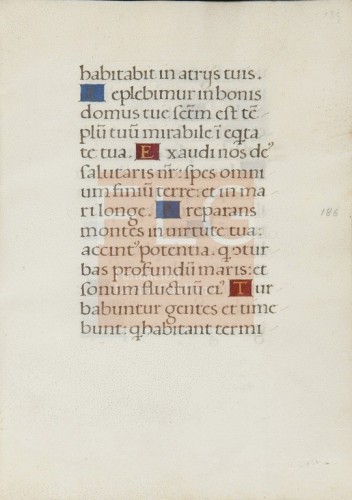 habitabit in atrijs tuis.
Replebimur in bonis
domus tue sctm est tē
plū tuū mirabile ī eqta
te tua. Exaudi nos deꝰ
salutaris nr̄: spes omni
um finiū terre: et in ma
ri longe. Preparans
montes in uirtute tua:
accintꝰ potentia. qꝯtur
bas profundū maris: et
sonum fluctuū eiꝰ Tur
babuntur gentes et time
bunt: q̄ habitant termi
186